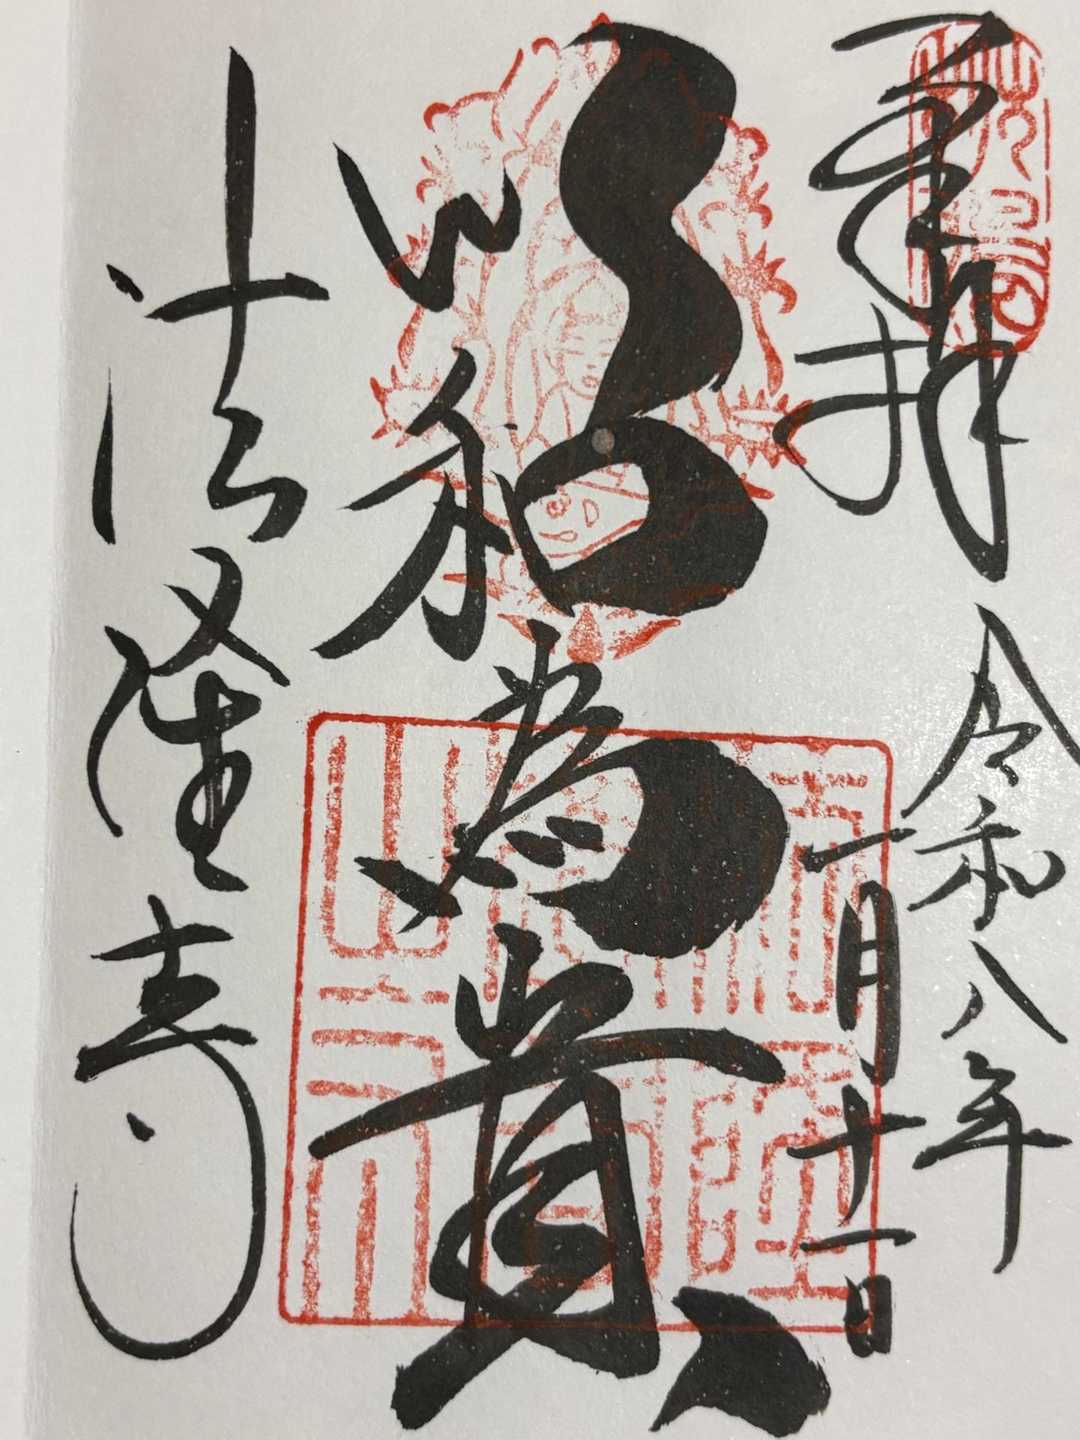 奉拝
令和八年
一月十一日
以和為貴
法隆寺